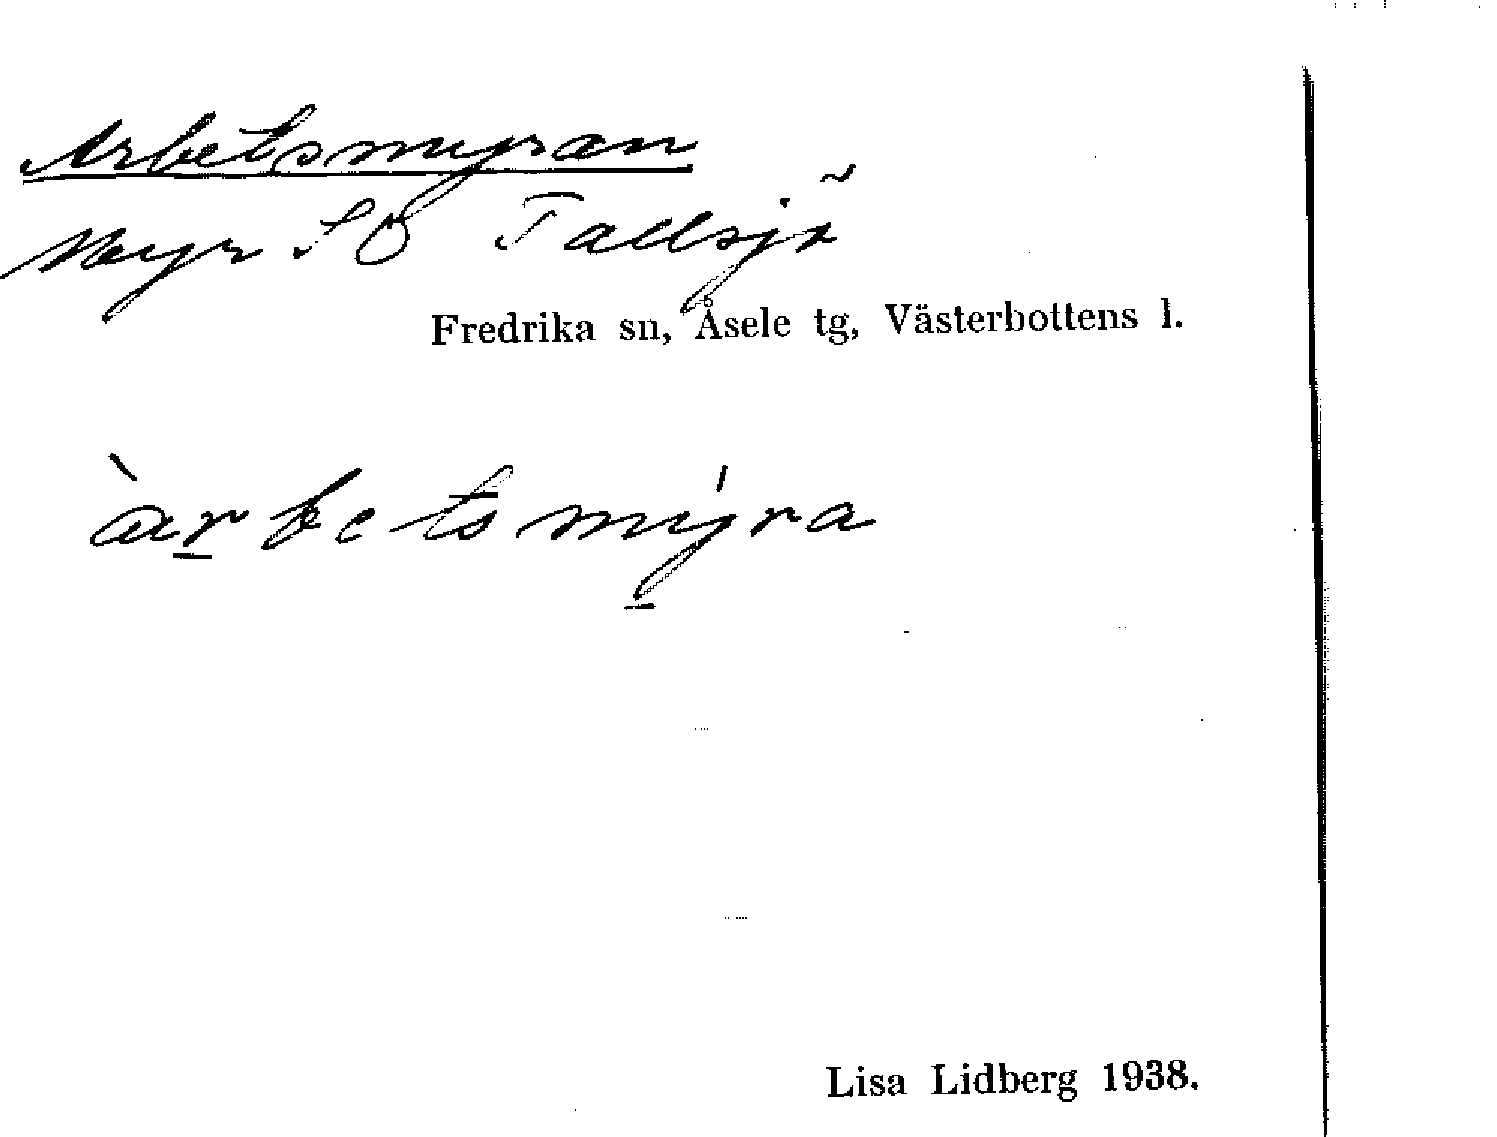 Arbetsmyran
Myr SO Tallsjö
Fredrika sn, Åsele tg, Västerbottens l.
àrbetsmýra
Lisa Lidberg 1938.